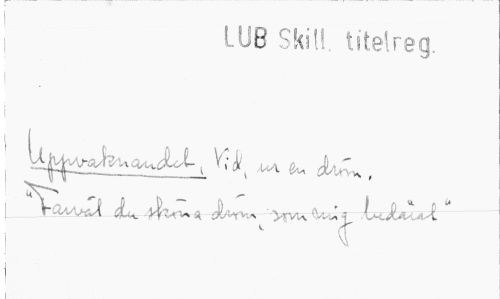 LUB Skill. titelreg.
Uppvaknandet, Vid, ur en dröm.
"Farväl du sköna dröm, som mig bedårat"